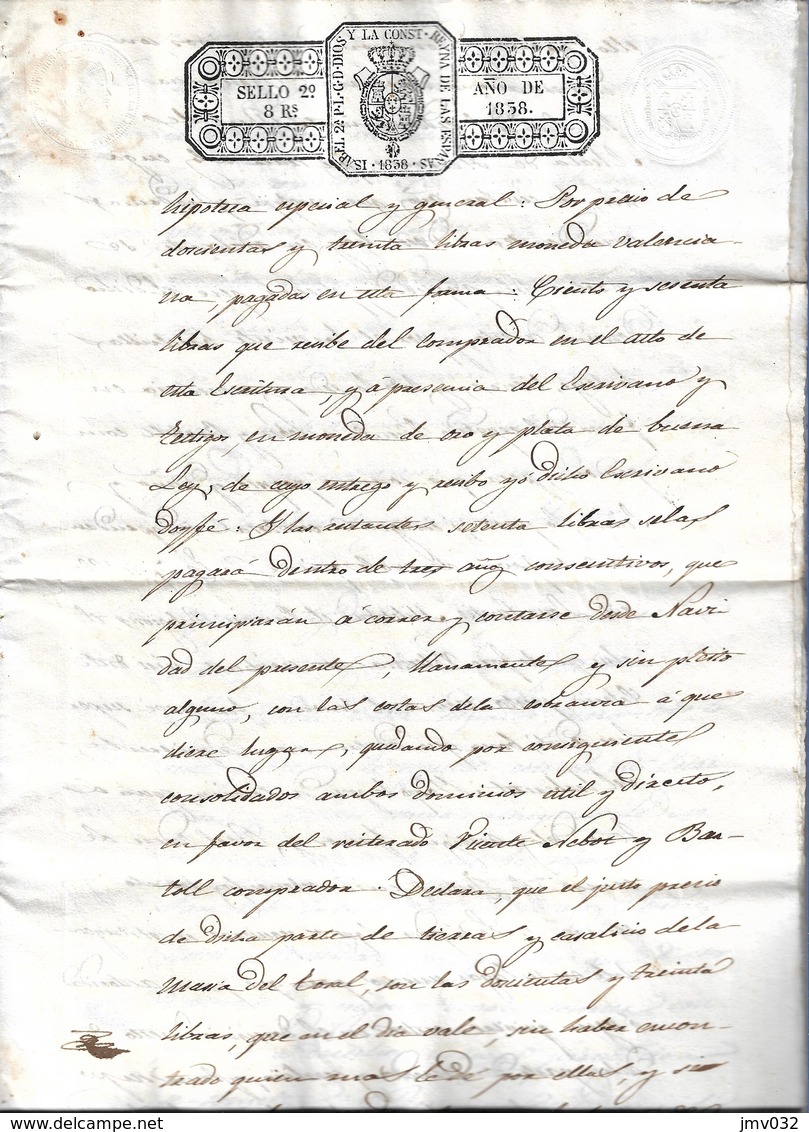 SELLO 2º
8 Rs
ISABEL 2ª P.L.G.D.DIOS Y LA CONST. REYNA DE LAS ESPAÑAS
1838
AÑO DE
1838.
hipoteca especial y general: Por precio de
docientas y treinta libras moneda valencia-
na, pagadas en esta forma: Ciento y sesenta
libras que recibe del Comprador en el acto de
esta Escritura, y á presencia del Escrivano y
testigos, en moneda de oro y plata de buena
Ley, de cuyo entrego y recibo yó dicho Escrivano
doyfé: Y las restantes setenta libras selas
pagará dentro de tres años consecutivos, que
principiarán á correr y contarse desde Navi
dad del presente, llanamente y sin pleito
alguno, con las costas dela cobranza á que
diere lugar, quedando por consiguiente
consolidados ambos dominios util y directo,
en favor del reiterado Vicente Nebot y Bar-
toll comprador. Declara, que el justo precio
de dicha parte de tierras y casalicio dela
Masia del Toral, son las docientas y treinta
libras, que en el dia vale, sin haber encon-
trado quien mas le dé por ellas, y si
jmv032